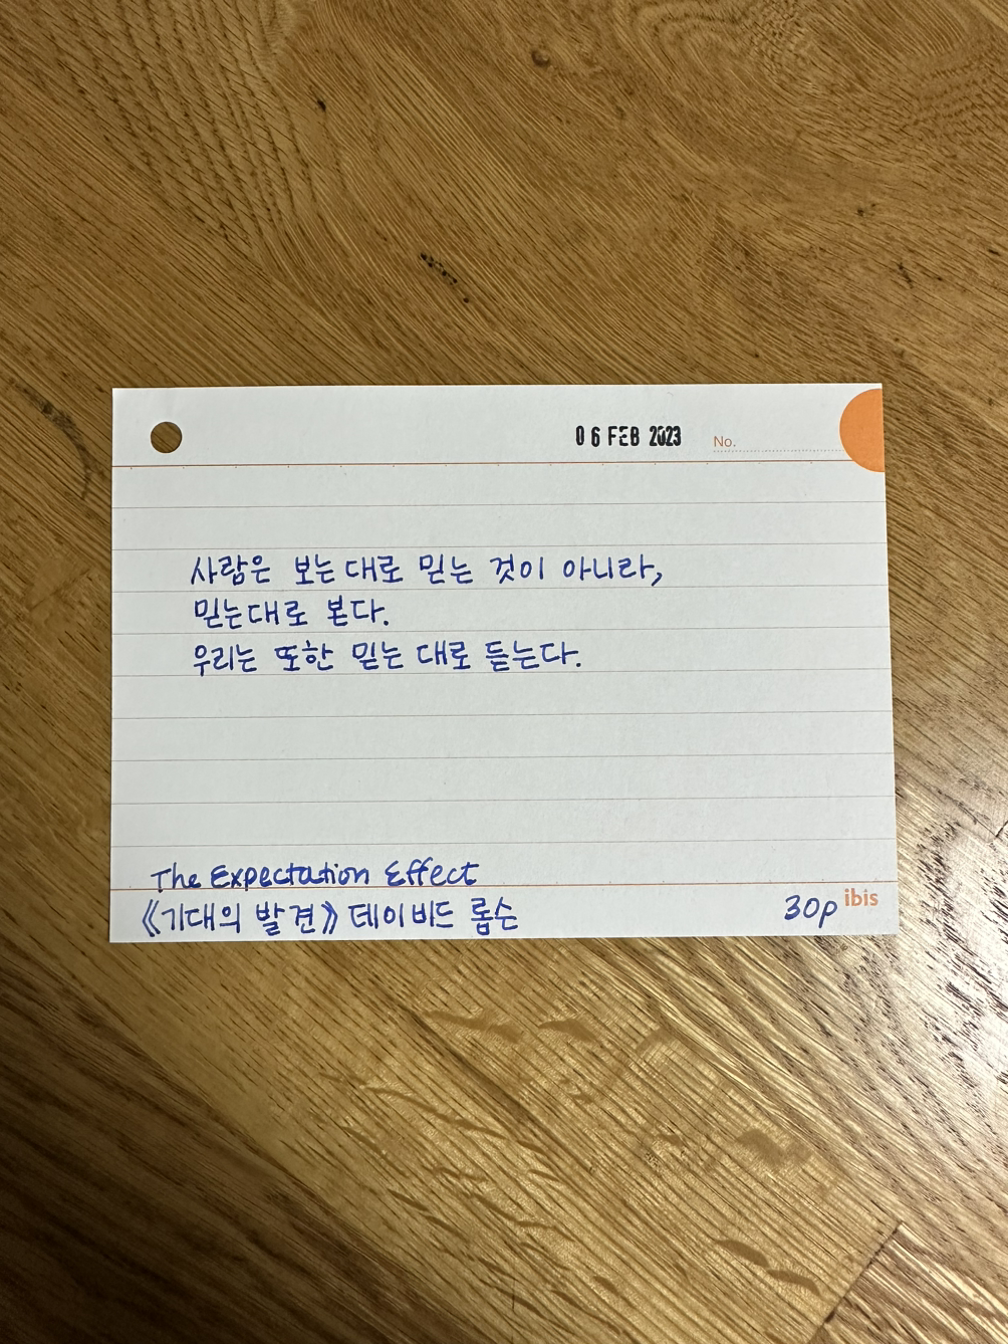 06 FEB 2023 No.
사람은 보는 대로 믿는 것이 아니라,
믿는대로 본다.
우리는 또한 믿는 대로 듣는다.
The Expectation Effect
《기대의 발견》 데이비드 롭슨
30p ibis